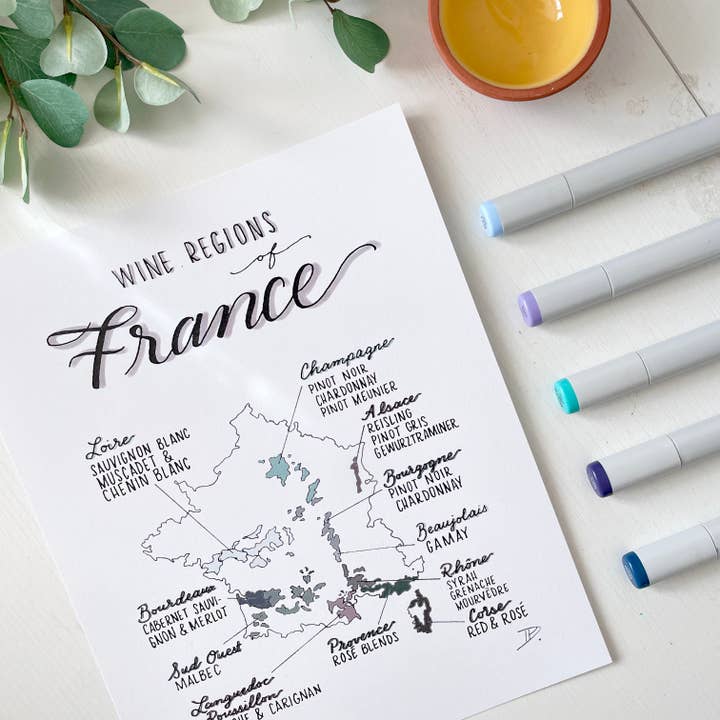 WINE REGIONS
of
France
Champagne
PINOT NOIR
CHARDONNAY
PINOT MEUNIER
Alsace
REISLING
PINOT GRIS
GEWURZTRAMINER
Loire
SAUVIGNON BLANC
MUSCADET &
CHENIN BLANC
Bourgogne
PINOT NOIR
CHARDONNAY
Beaujolais
GAMAY
Rhône
SYRAH
GRENACHE
MOURVEDRE
Bourdeaux
CABERNET SAUVI-
GNON & MERLOT
Corse
RED & ROSÉ
Provence
ROSÉ BLENDS
Sud Ouest
MALBEC
Languedoc
Roussillon
& CARIGNAN